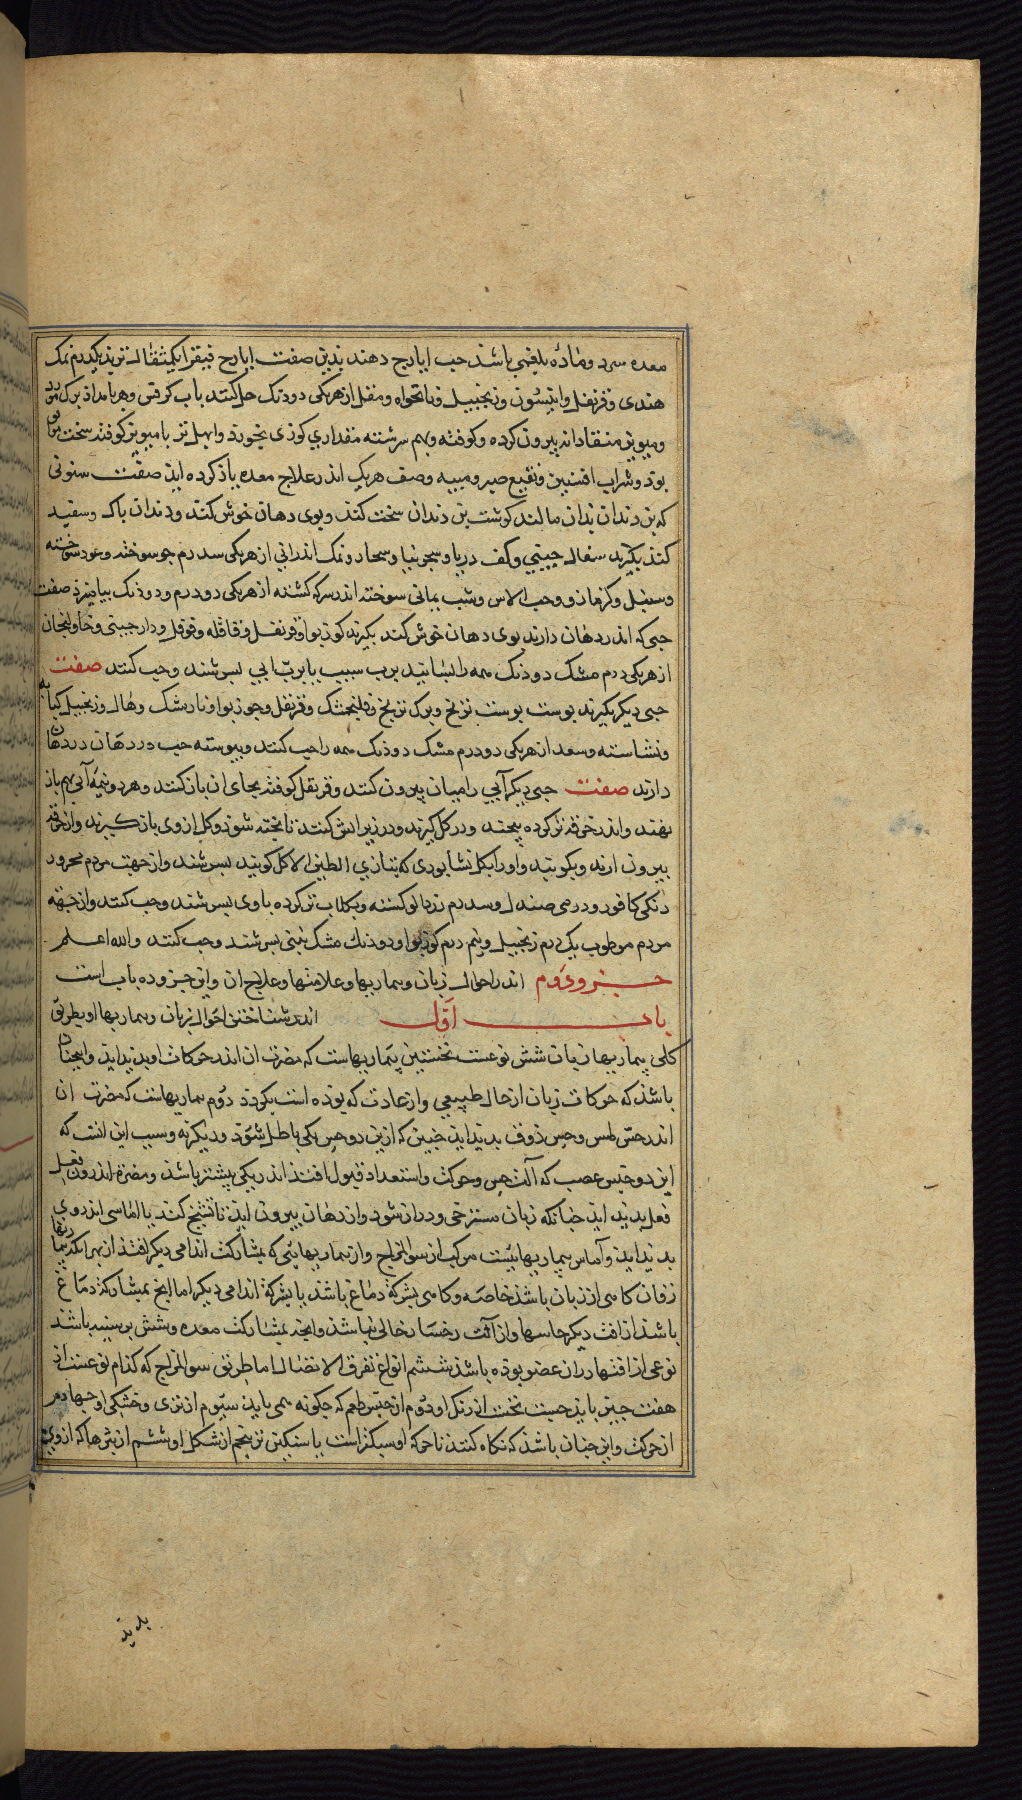 معده سرد وماده بلغمی باشد حب ایارج دهند بدین صفت ایارج فیقرا یکمثقال تربد یکدرم نمک
هندی وقرنفل وانیسون وزنجبیل ونانخواه ومقل از هریکی دودنک حل کنند بآب کرفس وهر بامداد برک مورد
ومویز منقا دانه بیرون کرده وکوفته وبهم سرشته مقداری کوزی بخورند وابهل تر با مویز کوفته سخت
بود وشراب افسنتین ونقیع صبر ومیبه وصف هریک اندر علاج معده یاذ کرده اید صفت سنونی
که بن دندان بدان مالند کوشت بن دندان سخت کند وبوی دهان خوش کند ودندان باک وسفید
کند بکیرند سفال چینی وکف دریا ونمک اندرانی از هریکی سدرم جو سوخته وعود سوخته
وسنبل وکزمازو وحب الاس وشب یمانی سوخته اندر سرکه کشته از هریکی دودرم ودودنک بیامیزند صفت
حبی که اندر دهان دارند بوی دهان خوش کند بکیرند کوزبوا وقرنفل وقاقله وفوفل ودار چینی وخاولنجان
از هریکی درم مشک دودنک همه را بسایند برب سیب یا برب ابی بسرشند وحب کنند صفت
حبی دیکر بکیرند پوست ترنج وبرک ترنج وفلنجشک وقرنفل وجوزبوا ونارمشک وهال وزنجبیل کبابه
ونشاسته وسعد از هریکی دودرم مشک دودنک همه را حب کنند وپیوسته حب در دهان
دارند صفت حبی دیکر آبی را میان بیرون کنند وقرنفل کوفته بجای ان باز کنند وهر دو نیمه آبی بهم باز
نهند واندر خرقه تر کرده پیچند ودر کل کیرند ودر زیر اتش کنند تا پخته شود وکل از وی باز کیرند واز خرقه
بیرون ارند وبکوبند واورا بکل نشابوری که بتازی الطین الاکل کویند بسرشند واز جهت مردم محرور
دنکی کافور ودرمی صندل وسدرم کشنه وبکلاب تر کرده با وی بسرشند وحب کنند واز جهة
مردم مرطوب یک درم زنجبیل ونیم درم کوزبوا ودودنک مشک بسرشند وحب کنند والله اعلم
جزو دوم اندر احوال زبان وبماریها وعلامتها وعلاج ان واین جزو ده باب است
باب اول اندر شناختن احوال زبان وبماریها او بطریق
کلی بیماریها زبان شش نوعست نخستین بیماریهاست که مضرت ان اندر حرکات او پدید اید وانچنان
باشد که حرکات زبان از حال طبیعی واز عادت که بوده است بکردد دوم بیماریهاست که مضرت ان
اندر حس لمس وحس ذوق پدید اید چنین که ازین دو حس یکی باطل شود ودیکر نه وسبب این انست که
این دو جنس عصب که آلت حس وحرکت واستعداد قبول افتد اندر یکی پیشتر باشد ومضرة اندرون فعل
فعل پدید اید چنانکه زبان مسترخی ودراز شود واز دهان بیرون اید تا تشنج کند یا اماسی اندر وی
پدید اید وآماس بیماریهائیست مرکب از سوالمزاج واز بیماریهائی که بمشارکت اندامی دیکر افتد از بهر انکه بیماریها
زفان کاهی از زبان باشد خاصه وکاهی بشرکة دماغ باشد یا بشرکة اندامی دیکر اما انچ بمشارکة دماغ
باشد از افت دیکر حاسها واز آفت رخسار خالی نباشد وانچه بمشارکت معده وشش وسینه باشد
نوعی از افتها دران عضو بوده باشد ششم انواع تفرق الاتصال اما طریق سوالمزاج که کدام نوعست از
هفت چیز باید جست نخست از رنک او دوم از جنس طعم که چکونه همی یابد سیوم از تری وخشکی او چهارم
از حرکت واین چنان باشد که نکاه کنند تا حرکة او سبکتر است یا سنکین تر پنجم از شکل او ششم از بثرها که از وی
بدید